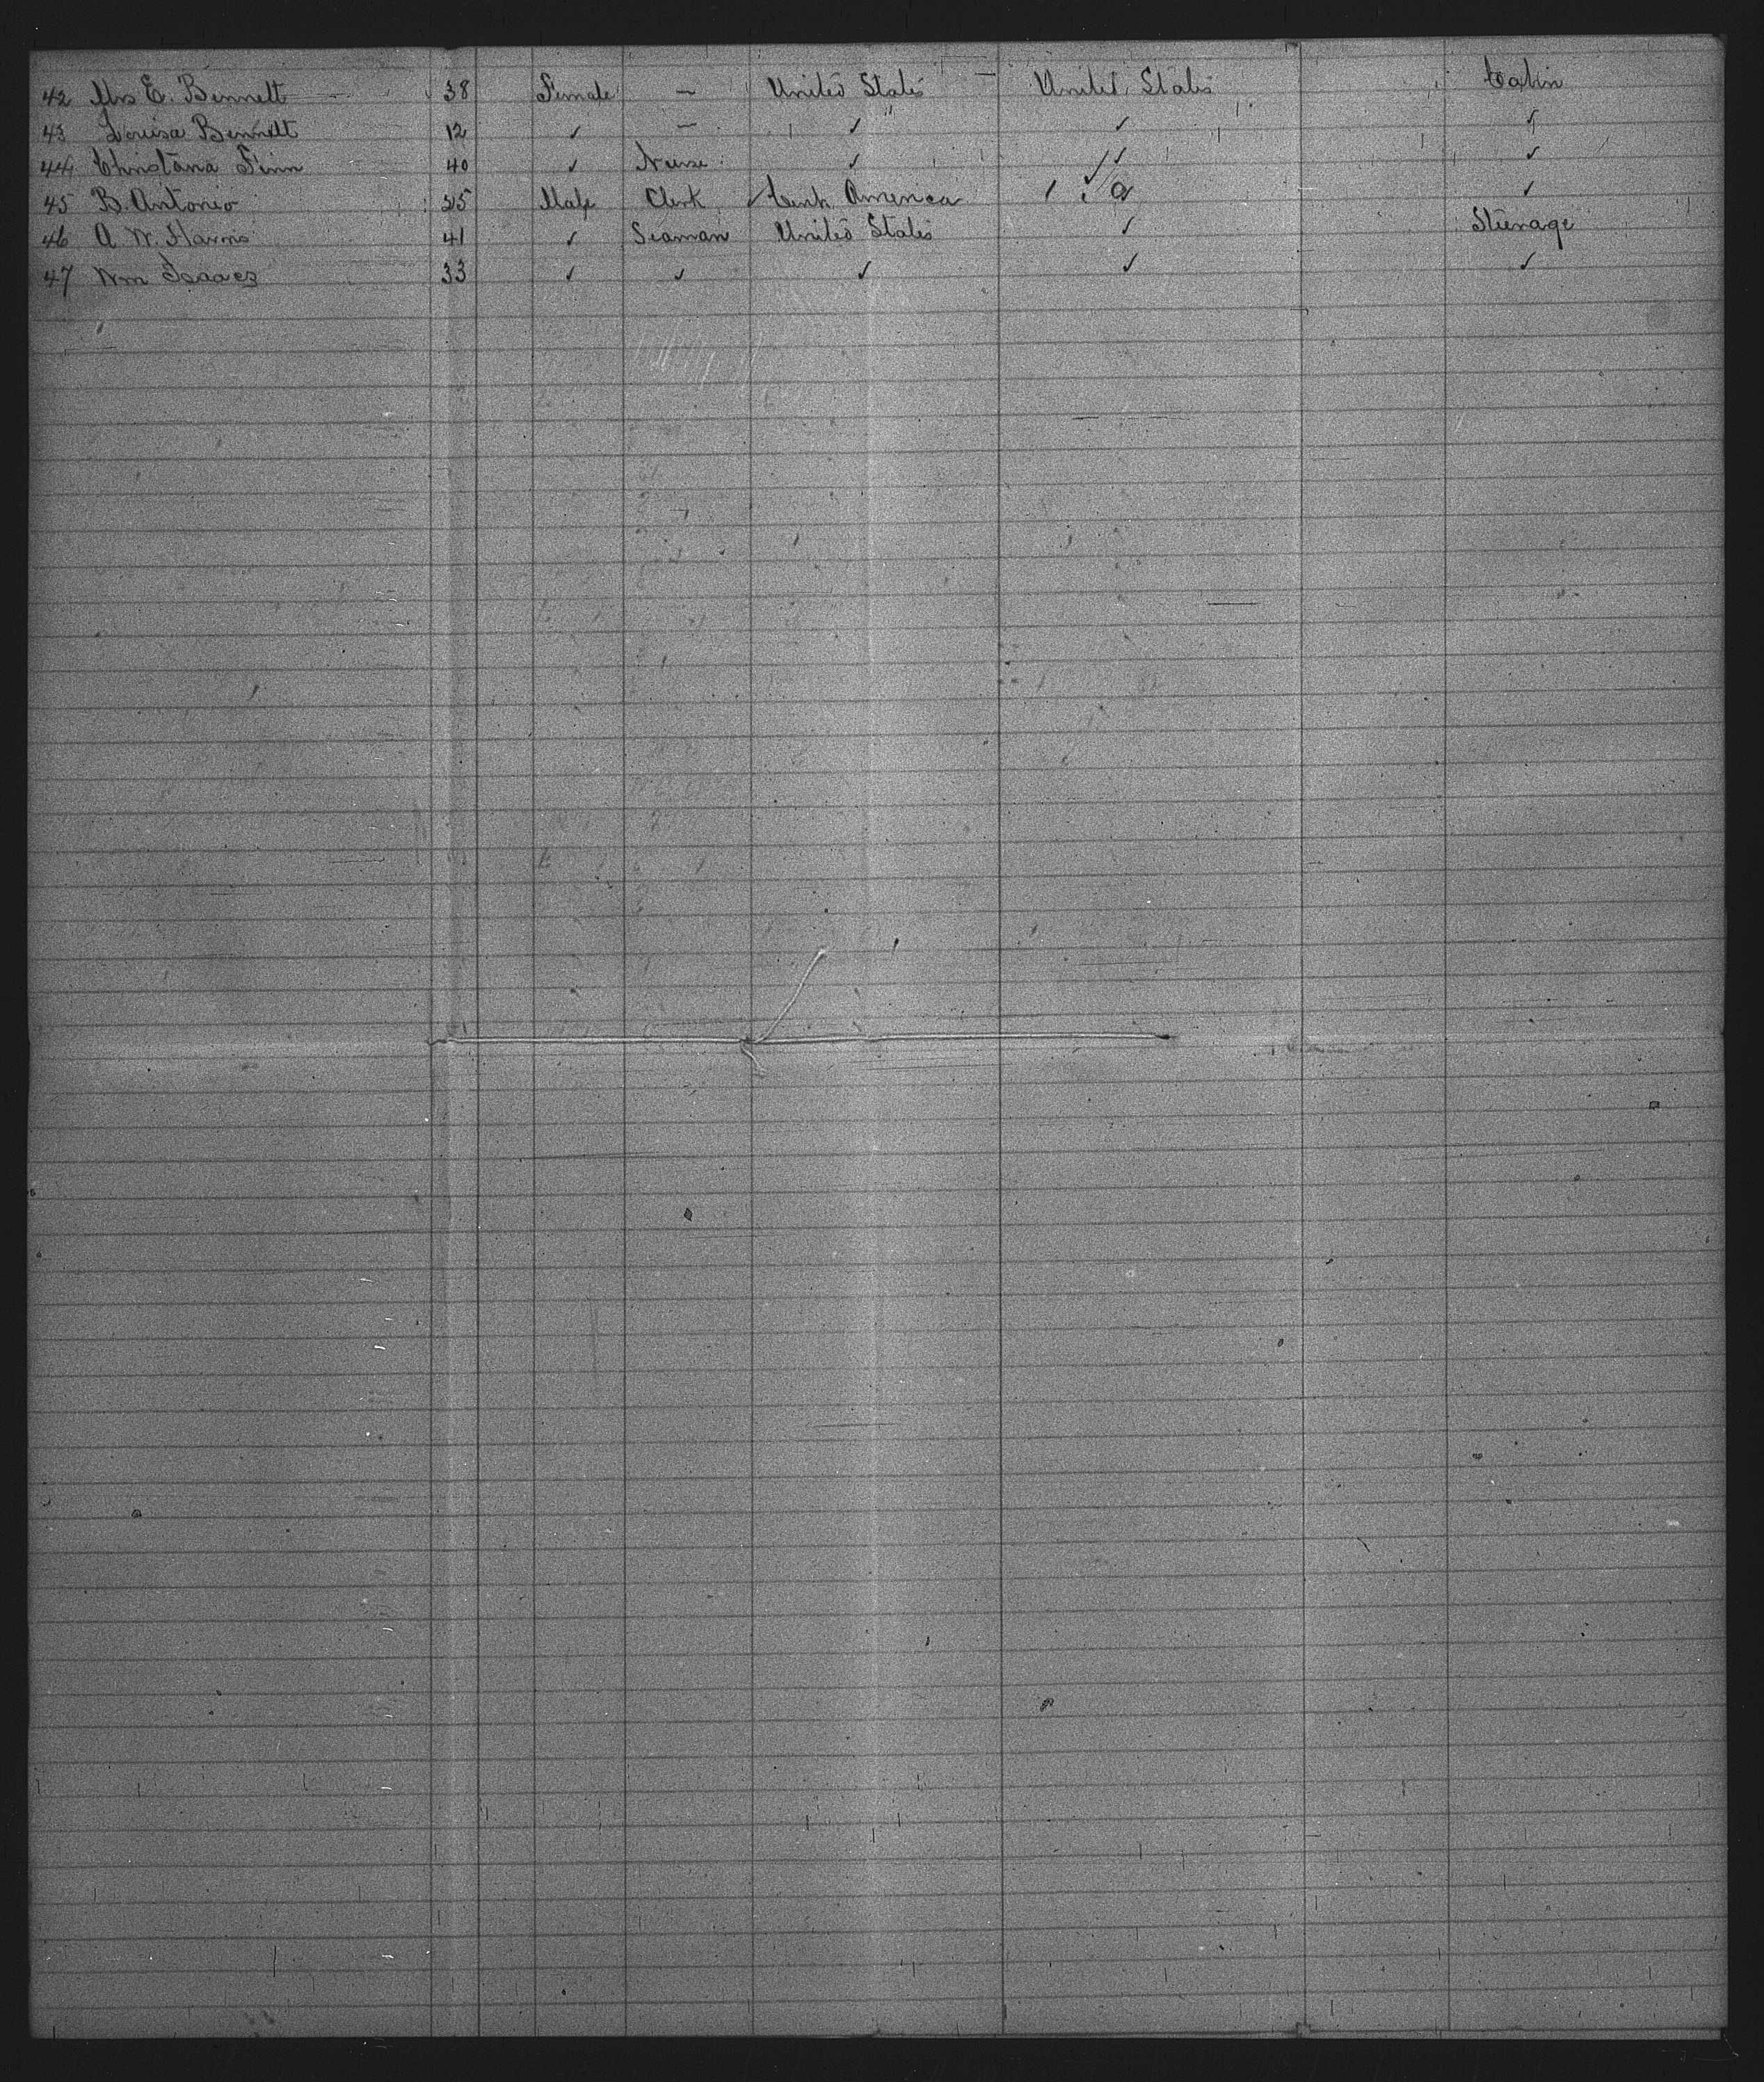 42 Mrs E. Bennett 38 Female — United States United States Cabin
43 Louisa Bennett 12 ✓ — ✓ ✓ ✓
44 Christana Finn 40 ✓ Nurse ✓ ✓ ✓
45 B. Antonio 25 Male Clerk ✓ Cent. America ✓
46 A W. Harris 41 ✓ Seaman United States ✓ Steerage
47 Wm Isaacs 33 ✓ ✓ ✓ ✓ ✓